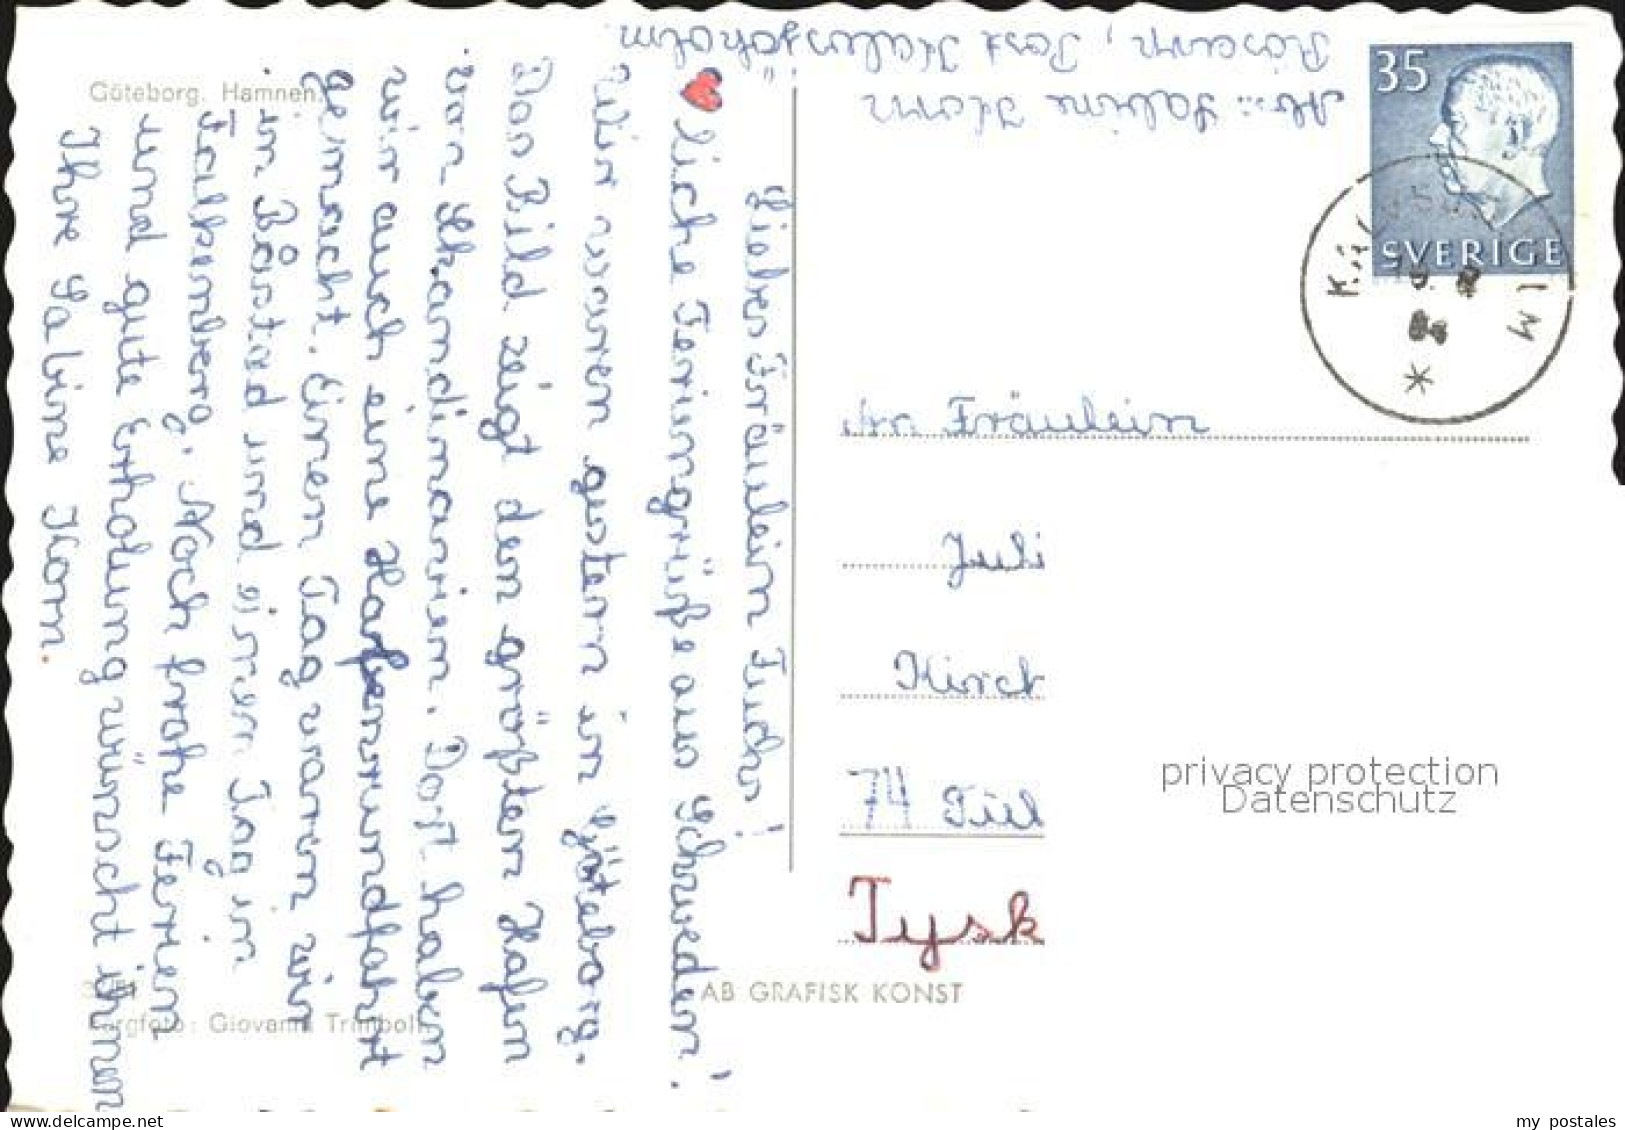 Göteborg. Hamnen.
Liebes Fräulein Fuchs!
♥liche Feriengrüße aus Schweden!
Wir waren gestern in Göteborg.
Das Bild zeigt den größten Hafen
von Skandinavien. Dort haben
wir auch eine Hafenrundfahrt
gemacht. Einen Tag waren wir
in Båstad und einen Tag in
Falkenberg. Noch frohe Ferien
und gute Erholung wünscht ihnen
Ihre Sabine Horn.
Abs.: Sabine Horn
Post
35
SVERIGE
An Fräulein
Juli
Kirch
74 Tü
Tysk
privacy protection
Datenschutz
AB GRAFISK KONST
Färgfoto: Giovanni Trimboli
my postales